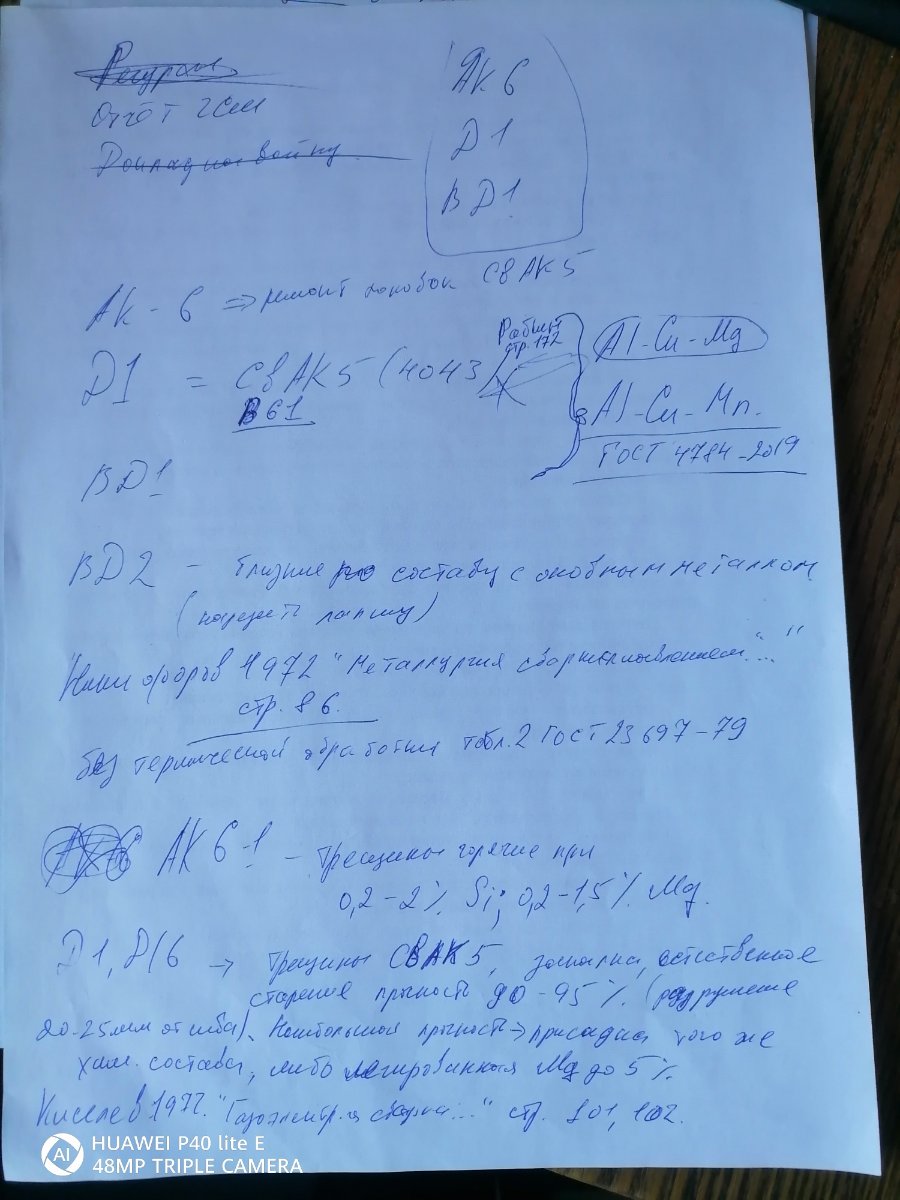 Отчёт ГСМ
АК6
Д1
ВД1
АК-6 => ремонт поковок СвАК5
Д1 = СвАК5 (4043)
В61
стр. 172
Al-Cu-Mg
Al-Cu-Mn.
ГОСТ 4784-2019
ВД1
ВД2 - близкие по составу с основным металлом
(нарезать лапшу)
"Никифоров 1972 "Металлургия сварки плавлением..."
стр. 86.
без термической обработки табл.2 ГОСТ 23697-79
АК6-1 - трещины горячие при
0,2-2% Si; 0,2-1,5% Mg.
Д1, Д16 → трещины СВАК5, закалка, естественное
старение прочность до - 95% (разрушение
20-25мм от шва). Наибольшая прочность → присадка того же
хим. состава, либо легированная Mg до 5%.
Киселев 1972. "Газоэлектр.я сварка..." стр. 101, 102.
HUAWEI P40 lite E
AI
48MP TRIPLE CAMERA